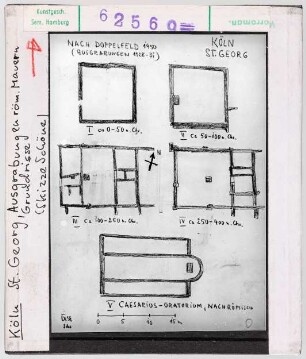 Kunstgesch.
Sem. Hamburg
62569
NACH DOPPELFELD 1950
(AUSGRABUNGEN 1928-31)
KÖLN
ST. GEORG
I ca 0-50 n. Chr.
II ca 50-100 n. Chr.
N
III ca 100-250 n. Chr.
IV ca 250-400 n. Chr.
V CAESARIUS-ORATORIUM, NACHRÖMISCH
0 5 10 15 m
Köln St. Georg Ausgrabungen röm. Mauern
(Grundrisse)
(Skizze Schöne)